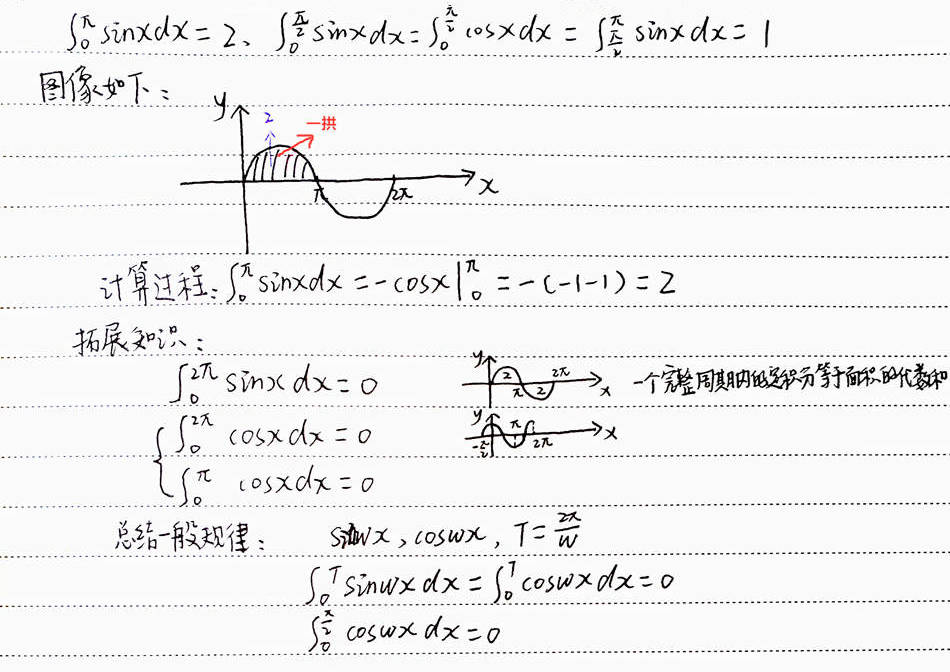 ∫₀^π sinxdx = 2、∫₀^(π/2) sinxdx = ∫₀^(π/2) cosxdx = ∫_(π/2)^π sinxdx = 1
图像如下：
y 2 一拱
π 2π x
计算过程：∫₀^π sinxdx = -cosx|₀^π = -(-1-1) = 2
拓展知识：
∫₀^(2π) sinx dx = 0 y 2 π 2 2π x 一个完整周期内的定积分等于面积的代数和
∫₀^(2π) cosxdx = 0 y -π/2 π 2π x
∫₀^π cosxdx = 0
总结一般规律： sinwx, coswx, T = 2π/w
∫₀^T sinwxdx = ∫₀^T coswxdx = 0
∫₀^(π/2) coswxdx = 0